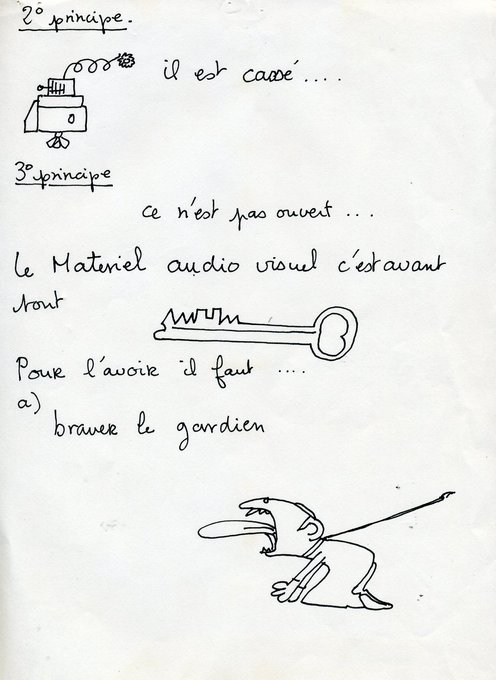 2° principe.
il est cassé....
3° principe
ce n'est pas ouvert...
Le Materiel audio visuel c'est avant
tout
Pour l'avoir il faut ....
a)
braver le gardien